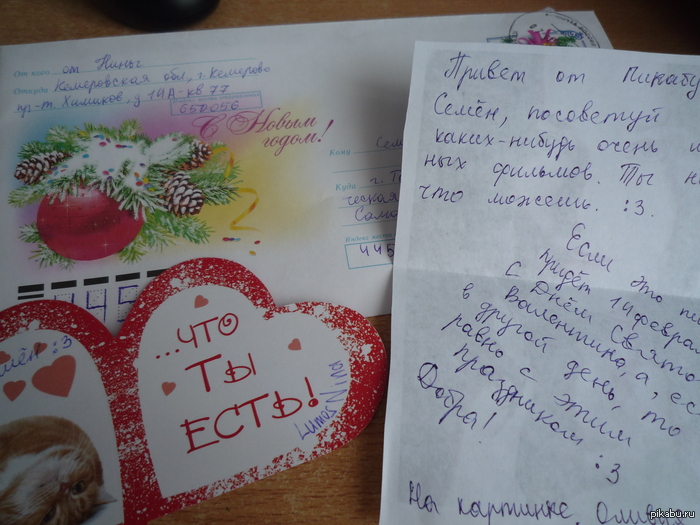 От кого от Нины
Откуда Кемеровская обл., г. Кемерово
пр-т. Химиков, д 19А-кв 77
650056
С Новым
годом!
Кому
Куда г. То
ческая
Сама
Индекс
445
445
...ЧТО
ТЫ
ЕСТЬ!
Lumos Nina
:3
Привет от Пикабу
Семён, посоветуй
каких-нибудь очень и
ных фильмов. Ты н
что можешь. :3.
Если это пи
придёт 14 феврал
с Днём Свято
Валентина, а, ес
в другой день, то
равно с этим
праздником
Добра!
:3
На картинке,
pikabu.ru